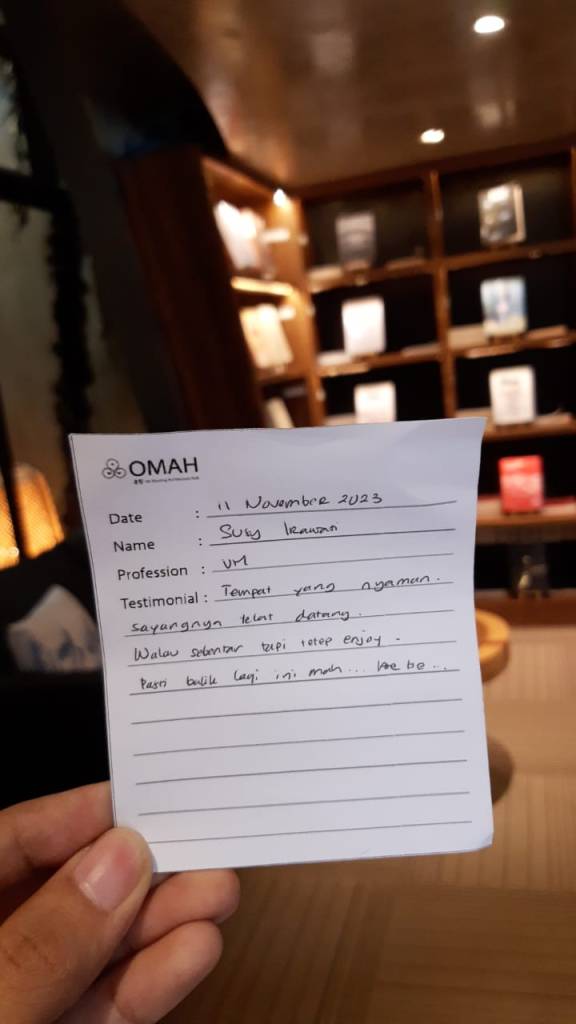 OMAH
Date : 11 November 2023
Name : Susy Irawati
Profession : VM
Testimonial : Tempat yang nyaman.
Sayangnya telat datang.
Walau sebentar tapi tetep enjoy.
Pasti balik lagi ini mah...